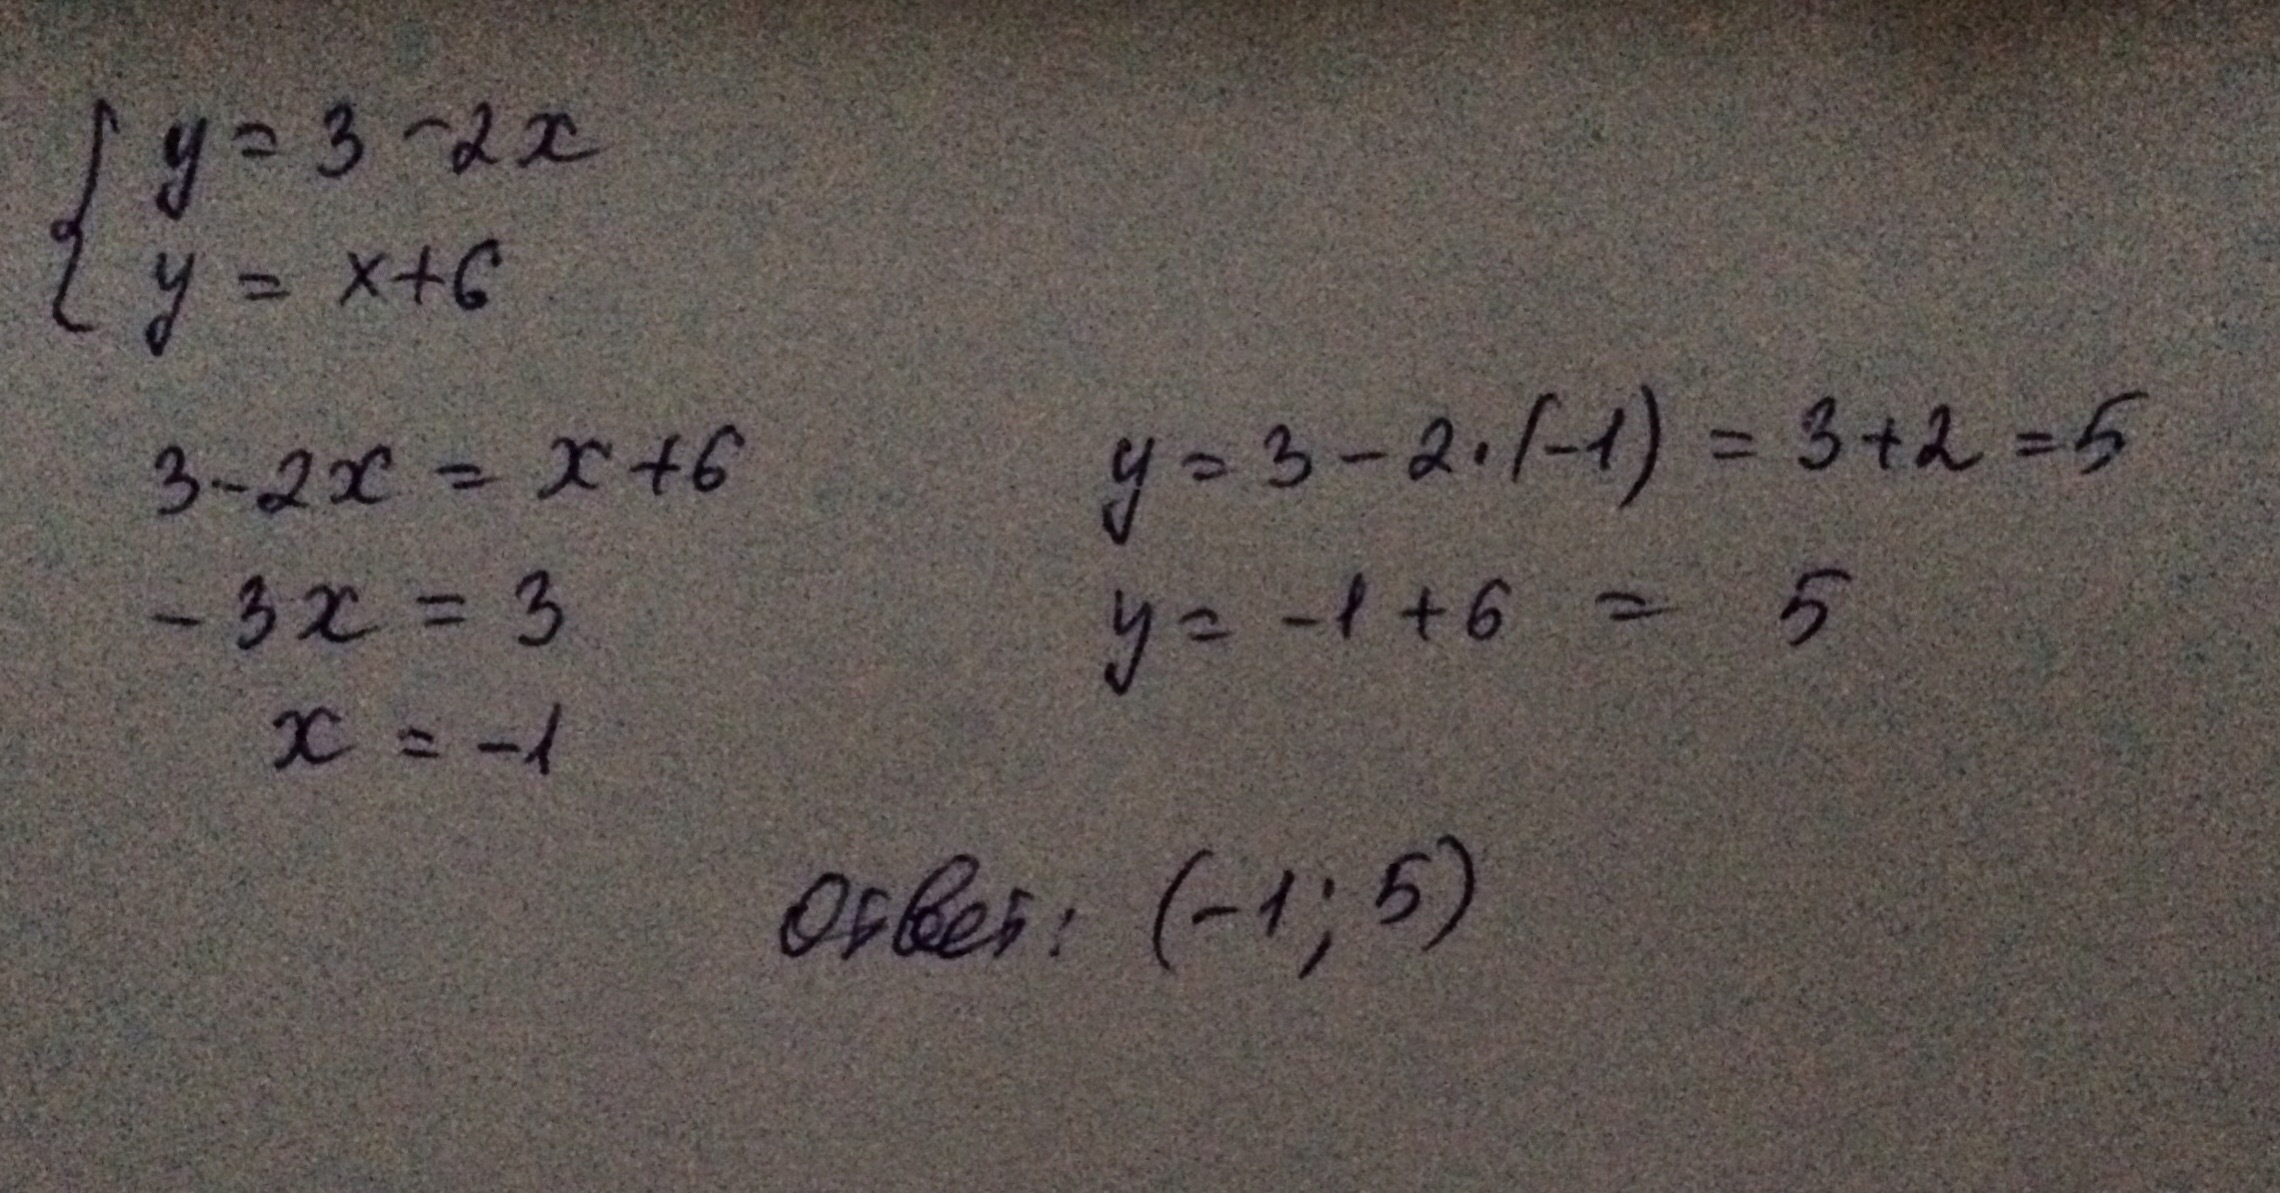 { y = 3 - 2x
y = x + 6
3 - 2x = x + 6
- 3x = 3
x = -1
y = 3 - 2 · (-1) = 3 + 2 = 5
y = -1 + 6 = 5
Ответ: (-1; 5)